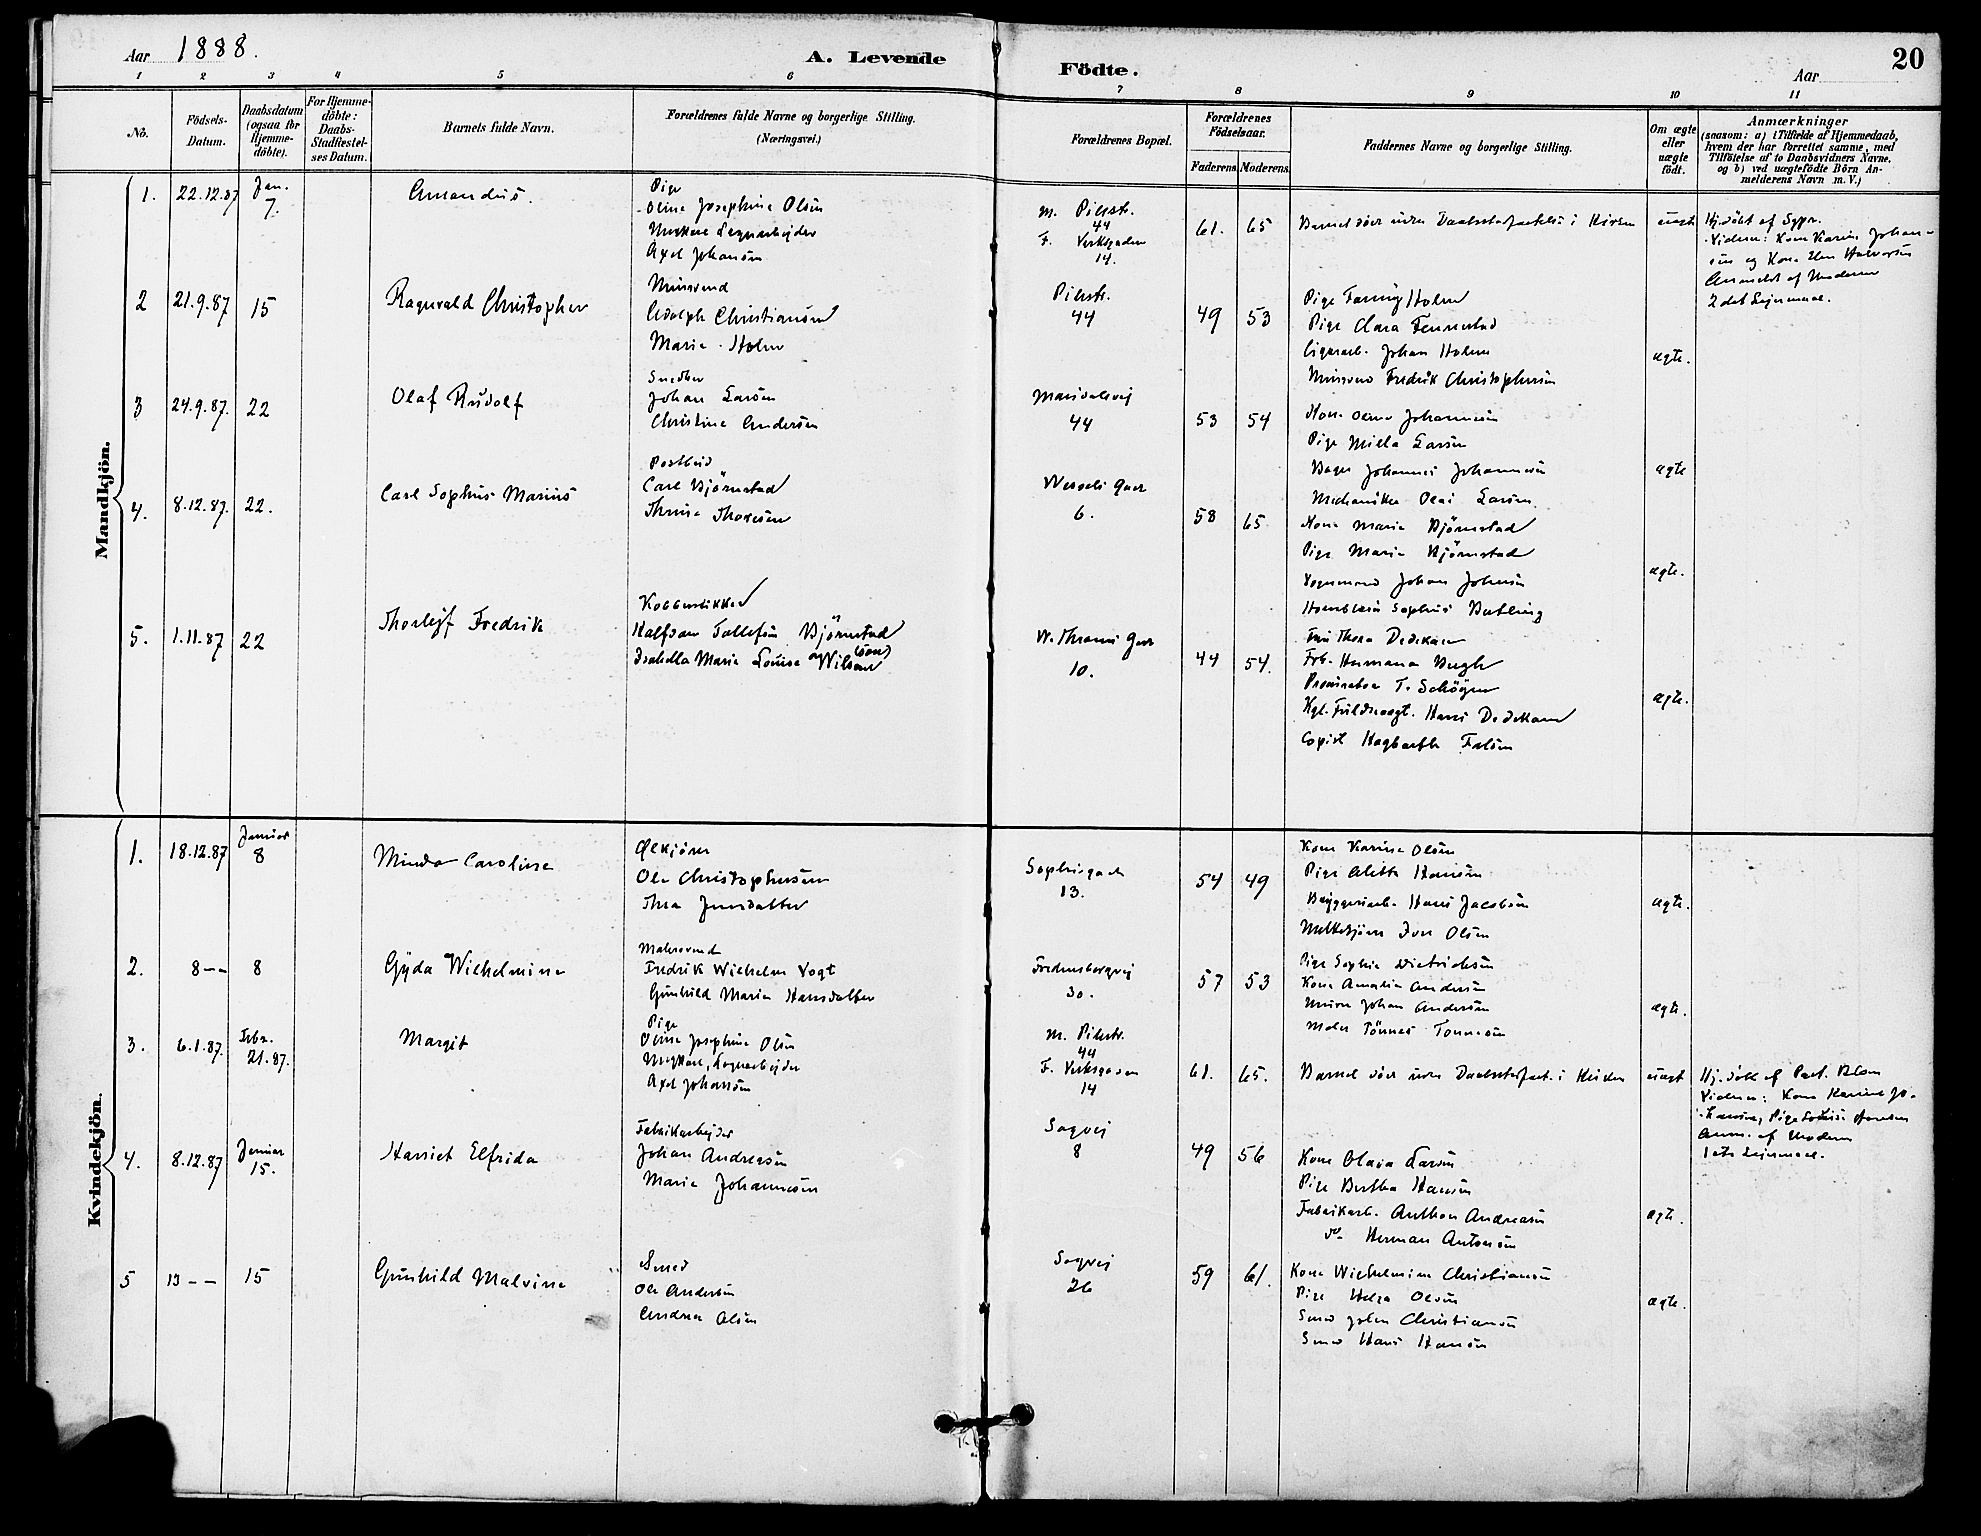 Aar 1888.
A. Levende
Födte.
Aar
20
1 2 3 4 5 6 7 8 9 10 11
No.
Födsels-Datum.
Daabsdatum (ogsaa for Hjemme-döbte).
For Hjemme-döbte: Daabs-Stadfæstel-ses Datum.
Barnets fulde Navn.
Forældrenes fulde Navne og borgerlige Stilling. (Næringsvei.)
Forældrenes Bopæl.
Forældrenes Födselsaar.
Faderens Moderens
Faddernes Navne og borgerlige Stilling.
Om ægte eller uægte födt.
Anmærkninger (saasom: a) i Tilfælde af Hjemmedaab, hvem der har forrettet samme, med Tilföielse af to Daabsvidners Navne, og b) ved uægtefödte Börn An-melderens Navn m. V.)
Mandkjön.
1. 22.12.87 Jan. 7. Amandus.
Pige
Oline Josephine Olsen
Axel Johansen
M. Pilestr. 44
F. Verksgaden 14.
61. 65 Barnet död uden Daabsstadfæstelse i Kirken uægt
Hj.döbt af
Vidner: Kone Karine Johan-
sen og Kone
Anmeldt af Moderen
2det Leiermaal.
2 21.9.87 15 Ragnvald Christopher
Murersvend
Adolph Christiansen
Marie Holm
Pilestr. 44
49 53
Pige Fanny Holm
Pige Clara Fennestad
Cigararb. Johan Holm
Murersvend Fredrik Christophersen
ægte.
3 24.9.87. 22 Olaf Rudolf
Snedker
Johan Larsen
Christine Andersen
Maridalsvej 44
53 54
Kone Oline Johannesen
Pige Milla Larsen
Bager Johannes Johannesen
Mechaniker Olai Larsen
ægte
4. 8.12.87. 22. Carl Sophus Marius
Postbud
Carl Björnstad
Thrine Thoresen
Wessels Gade 6.
58 65
Kone Maria Björnstad
Pige Marie Björnstad
Vognmand Johan Johnsen
Sophus
ægte.
5. 1.11.87 22 Thorleif Fredrik
Kobberstikker
Halfdan Tollefsen Björnstad
Isabella Marie Louise Wilson
W. Thranes Gade 10.
44 54.
Fru Thora Dedekam
Frk. Hermana Bugge
T. Schöyen
Kgl. Fuldmægt. Hans Dedekam
Copist Hagbarth Falsen
ægte.
Kvindekjön.
1. 18.12.87 Januar 8 Minda Caroline
Ölkjörer
Ole Christophersen
Thea Jensdatter
Sophiesgade 13.
54 49
Kone Karine Olsen
Pige Alette Hansen
Bryggeriarb. Hans Jacobsen
Melkekjörer Iver Olsen
ægte.
2. 8 – – 8 Gyda Wilhelmine
Malersvend
Fredrik Wilhelm Vogt
Gunhild Marie Hansdatter
Fredensborgvej 30.
57 53
Pige Sophie Dietrichsen
Kone Amalie Andersen
Murer Johan Andersen
Maler Tönnes Tönnesen
ægte.
3. 6.1.87. Febr. 21.87. Margit
Pige
Oline Josephine Olsen
Axel Johansen
M. Pilestr. 44
F. Verksgaden 14
61. 65. Barnet död uden Daabsstadfæst. i Kirken uægt
Hj.döbt af Past. Blom
Vidner: Kone Karine Jo-
hansen, Pige Hansen
Anm. af Moderen
1ste Leiermaal.
4. 8.12.87 Januar 15. Harriet Elfrida
Fabrikarbejder
Johan Andreasen
Marie Johannesen
Sagvej 8
49 56
Kone Olava Larsen
Pige Bertha Hansen
Fabrikarb. Anthon Andreasen
do. Herman Antonsen
ægte.
5 13 – – 15 Gunhild Malvine
Smed
Ole Andersen
Andrea Olsen
Sagvej 26
59 61.
Kone Wilhelmine Christiansen
Pige Helga Olsen
Smed John Christiansen
Smed Hans Hansen
ægte.